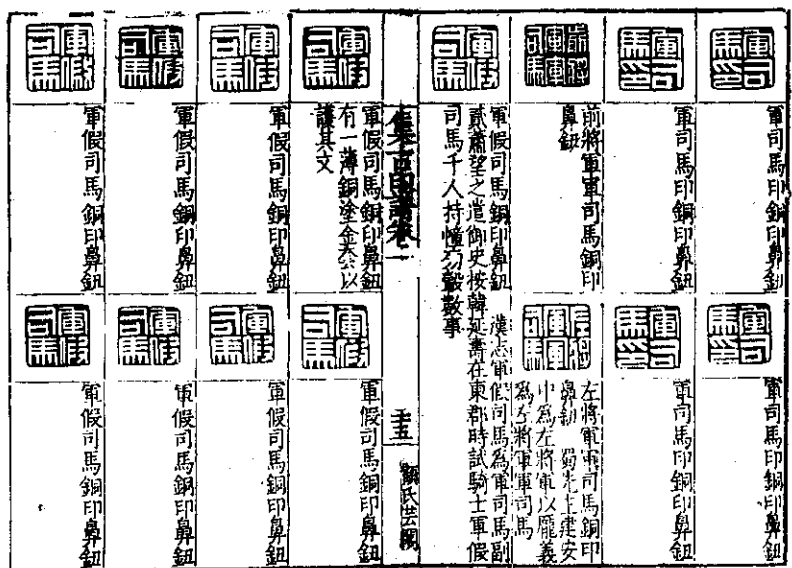 軍司馬印
軍司馬印銅印鼻鈕
軍司馬印
軍司馬印銅印鼻鈕
軍司馬印
軍司馬印銅印鼻鈕
軍司馬印
軍司馬印銅印鼻鈕
前將軍軍司馬
前將軍軍司馬銅印
鼻鈕
左將軍軍司馬
左將軍軍司馬銅印
鼻鈕 蜀先主建安
中為左將軍以龐義
為左將軍軍司馬
軍假司馬
軍假司馬銅印鼻鈕 漢志軍假司馬為軍司馬副
貳蕭望之遣御史按韓延壽在東郡時試騎士軍假
司馬千人持幢旁轂數事
集古印譜卷一
顧氏芸閣
軍假司馬
軍假司馬銅印鼻鈕
有一薄銅塗金 以
護其文
軍假司馬
軍假司馬銅印鼻鈕
軍假司馬
軍假司馬銅印鼻鈕
軍假司馬
軍假司馬銅印鼻鈕
軍假司馬
軍假司馬銅印鼻鈕
軍假司馬
軍假司馬銅印鼻鈕
軍假司馬
軍假司馬銅印鼻鈕
軍假司馬
軍假司馬銅印鼻鈕